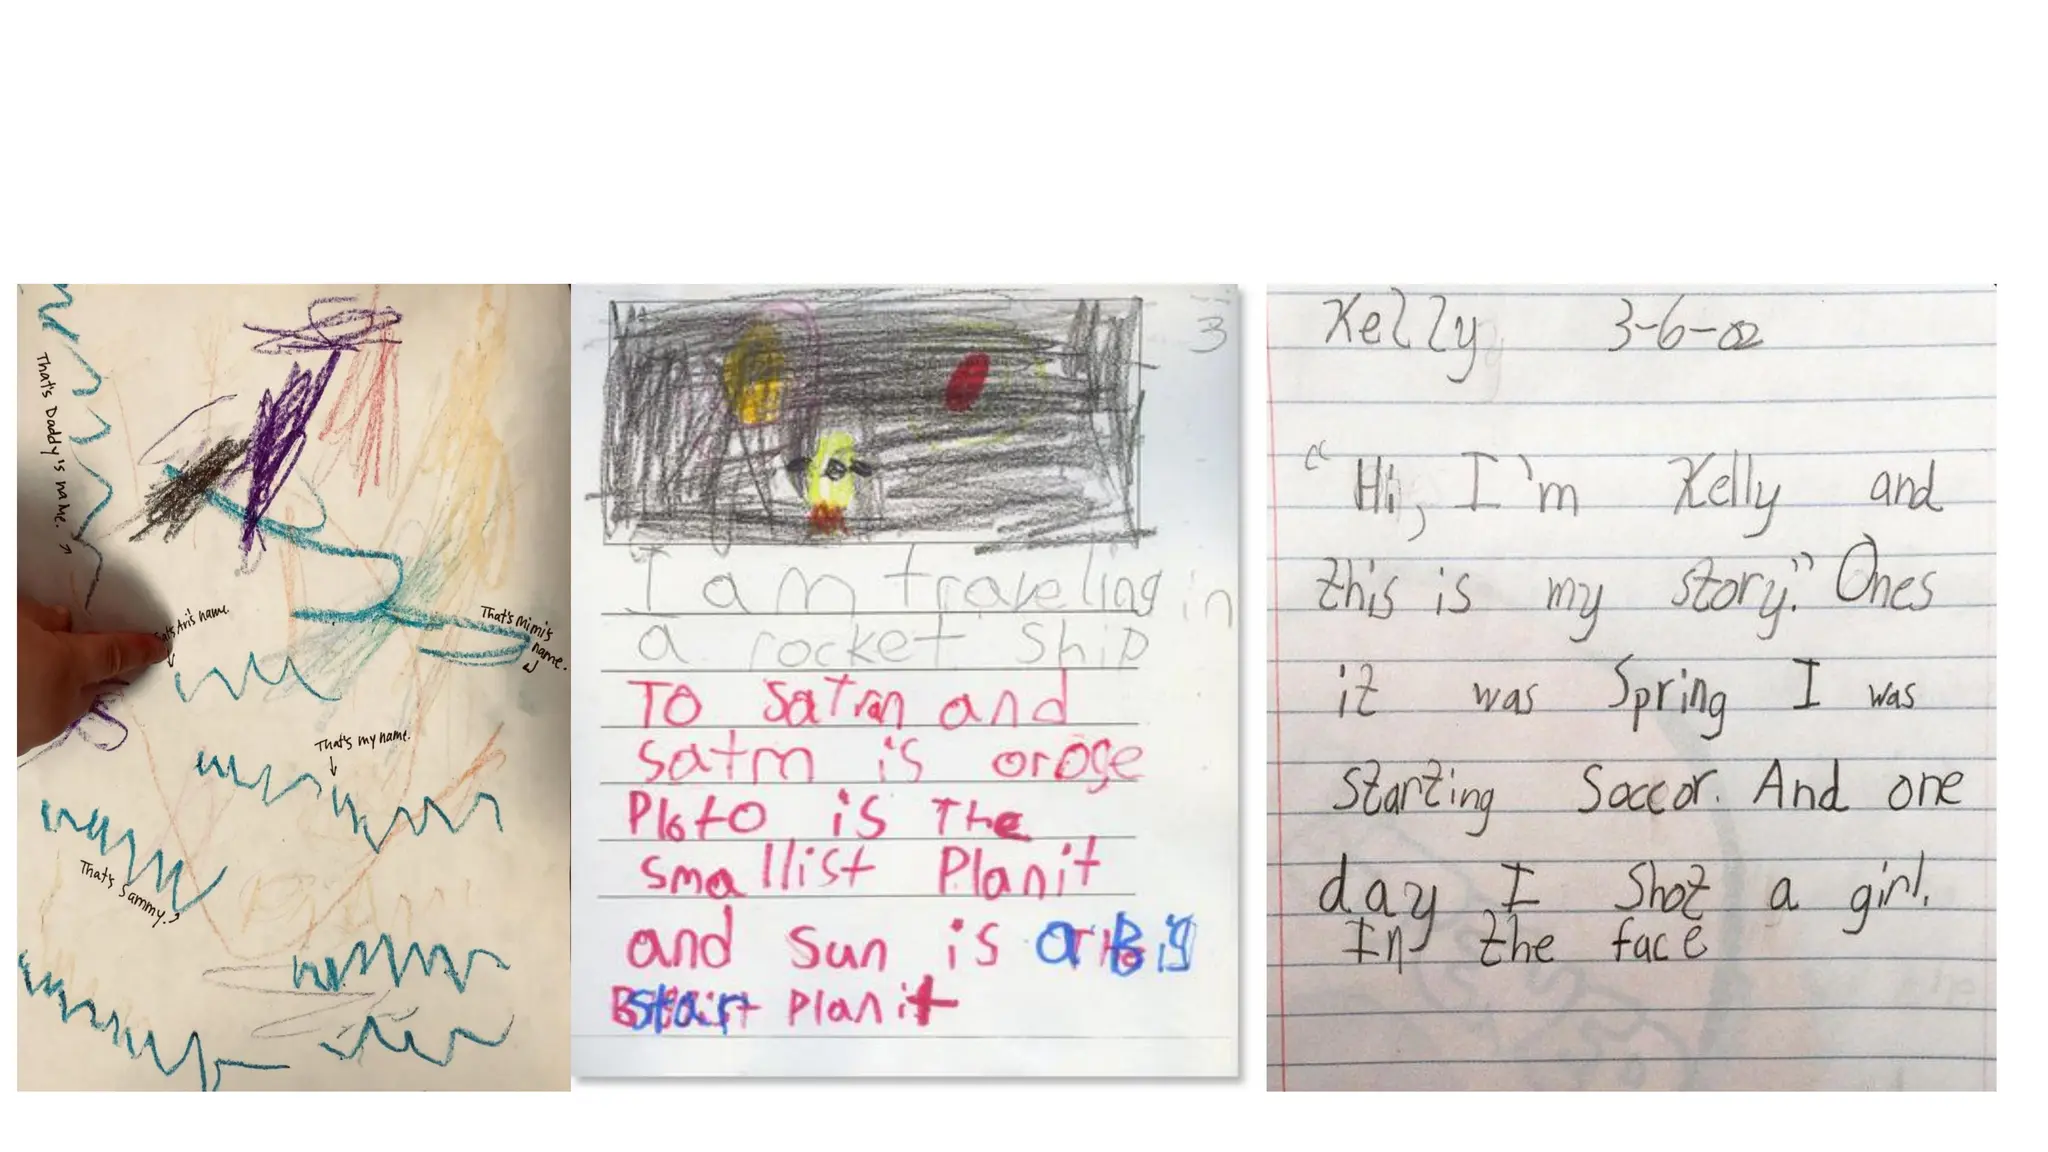 That's Daddy's name.
Aris name.
That's Mimi's
name.
That's my name.
That's Sammy.
3
I am traveling in
a rocket ship
To Satrn and
satrn is oroge
Pluto is The
smallist Planit
and sun is a Big
Star planit
Kelly 3-6-02
"Hi, I'm Kelly and
this is my story." Ones
it was Spring I was
starting Soccor. And one
day I Shot a girl.
In the face